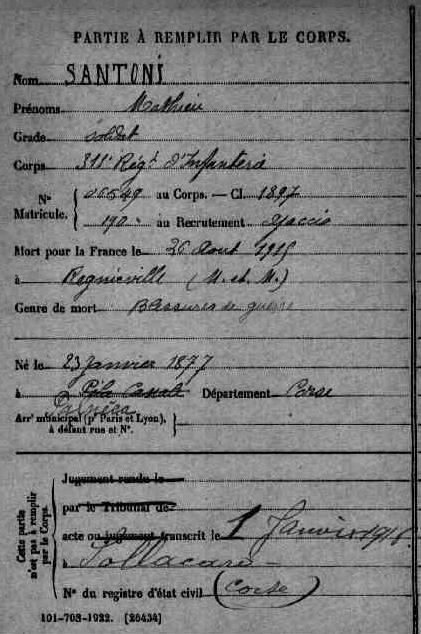 PARTIE À REMPLIR PAR LE CORPS.
Nom SANTONI
Prénoms Mathieu
Grade soldat
Corps 311e Régt d'Infanterie
Nº Matricule. 06549 au Corps. — Cl. 1897
1908 au Recrutement Ajaccio
Mort pour la France le 26 Aout 1915
à Regnieville (M. et. M.)
Genre de mort Blessures de guerre
Né le 23 janvier 1877
à Pila Canale Département Corse
Arrt municipal (pr Paris et Lyon), à défaut rue et Nº.
Cette partie n'est pas à remplir par le Corps.
Jugement rendu le
par le Tribunal de
acte ou jugement transcrit le 1 Janvier 1916
à Sollacaro
Nº du registre d'état civil (Corse)
101-708-1922. [26434]